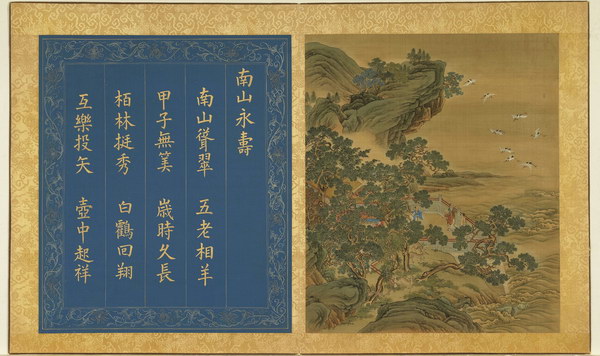 南山永壽
南山聳翠 五老相羊
甲子無筭 歲時久長
栢林挺秀 白鶴回翔
互樂投矢 壺中起祥